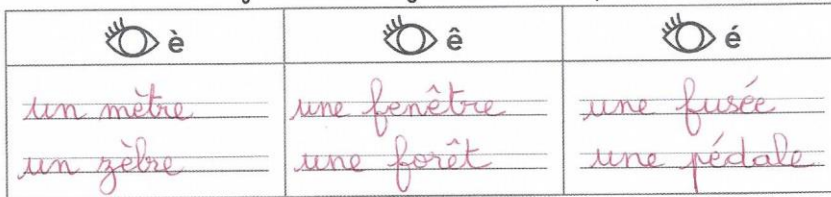 è ê é
un mètre une fenêtre une fusée
un zèbre une forêt une pédale